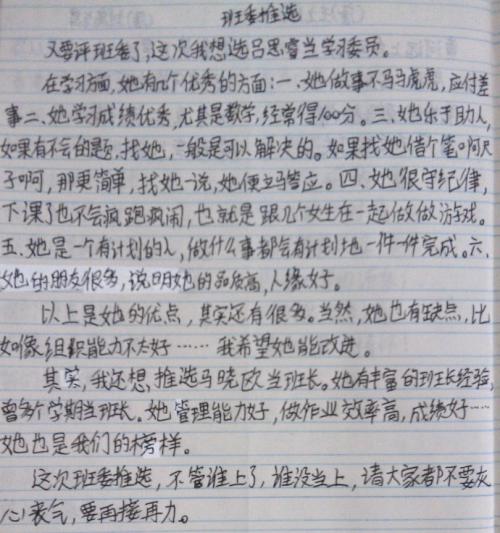 班委推选
又要评班委了,这次我想选吕思睿当学习委员。
在学习方面,她有几个优秀的方面:一、她做事不马马虎虎,应付差
事二、她学习成绩优秀,尤其是数学,经常得100分。三、她乐于助人,
如果有不会的题,找她,一般是可以解决的。如果找她借个笔啊尺
子啊,那更简单,找她一说,她便立马答应。四、她很守纪律,
下课了也不会疯跑疯闹,也就是跟几个女生在一起做做游戏。
五、她是一个有计划的人,做什么事都会有计划地一件一件完成。六、
她的朋友很多,说明她的品质高,人缘好。
以上是她的优点,其实还有很多。当然,她也有缺点,比
如像组织能力不太好……我希望她能改进。
其实,我还想推选马晓欧当班长。她有丰富的班长经验,
曾多个学期当班长。她管理能力好,做作业效率高,成绩好……
她也是我们的榜样。
这次班委推选,不管谁上了,谁没当上,请大家都不要灰
心丧气,要再接再力。